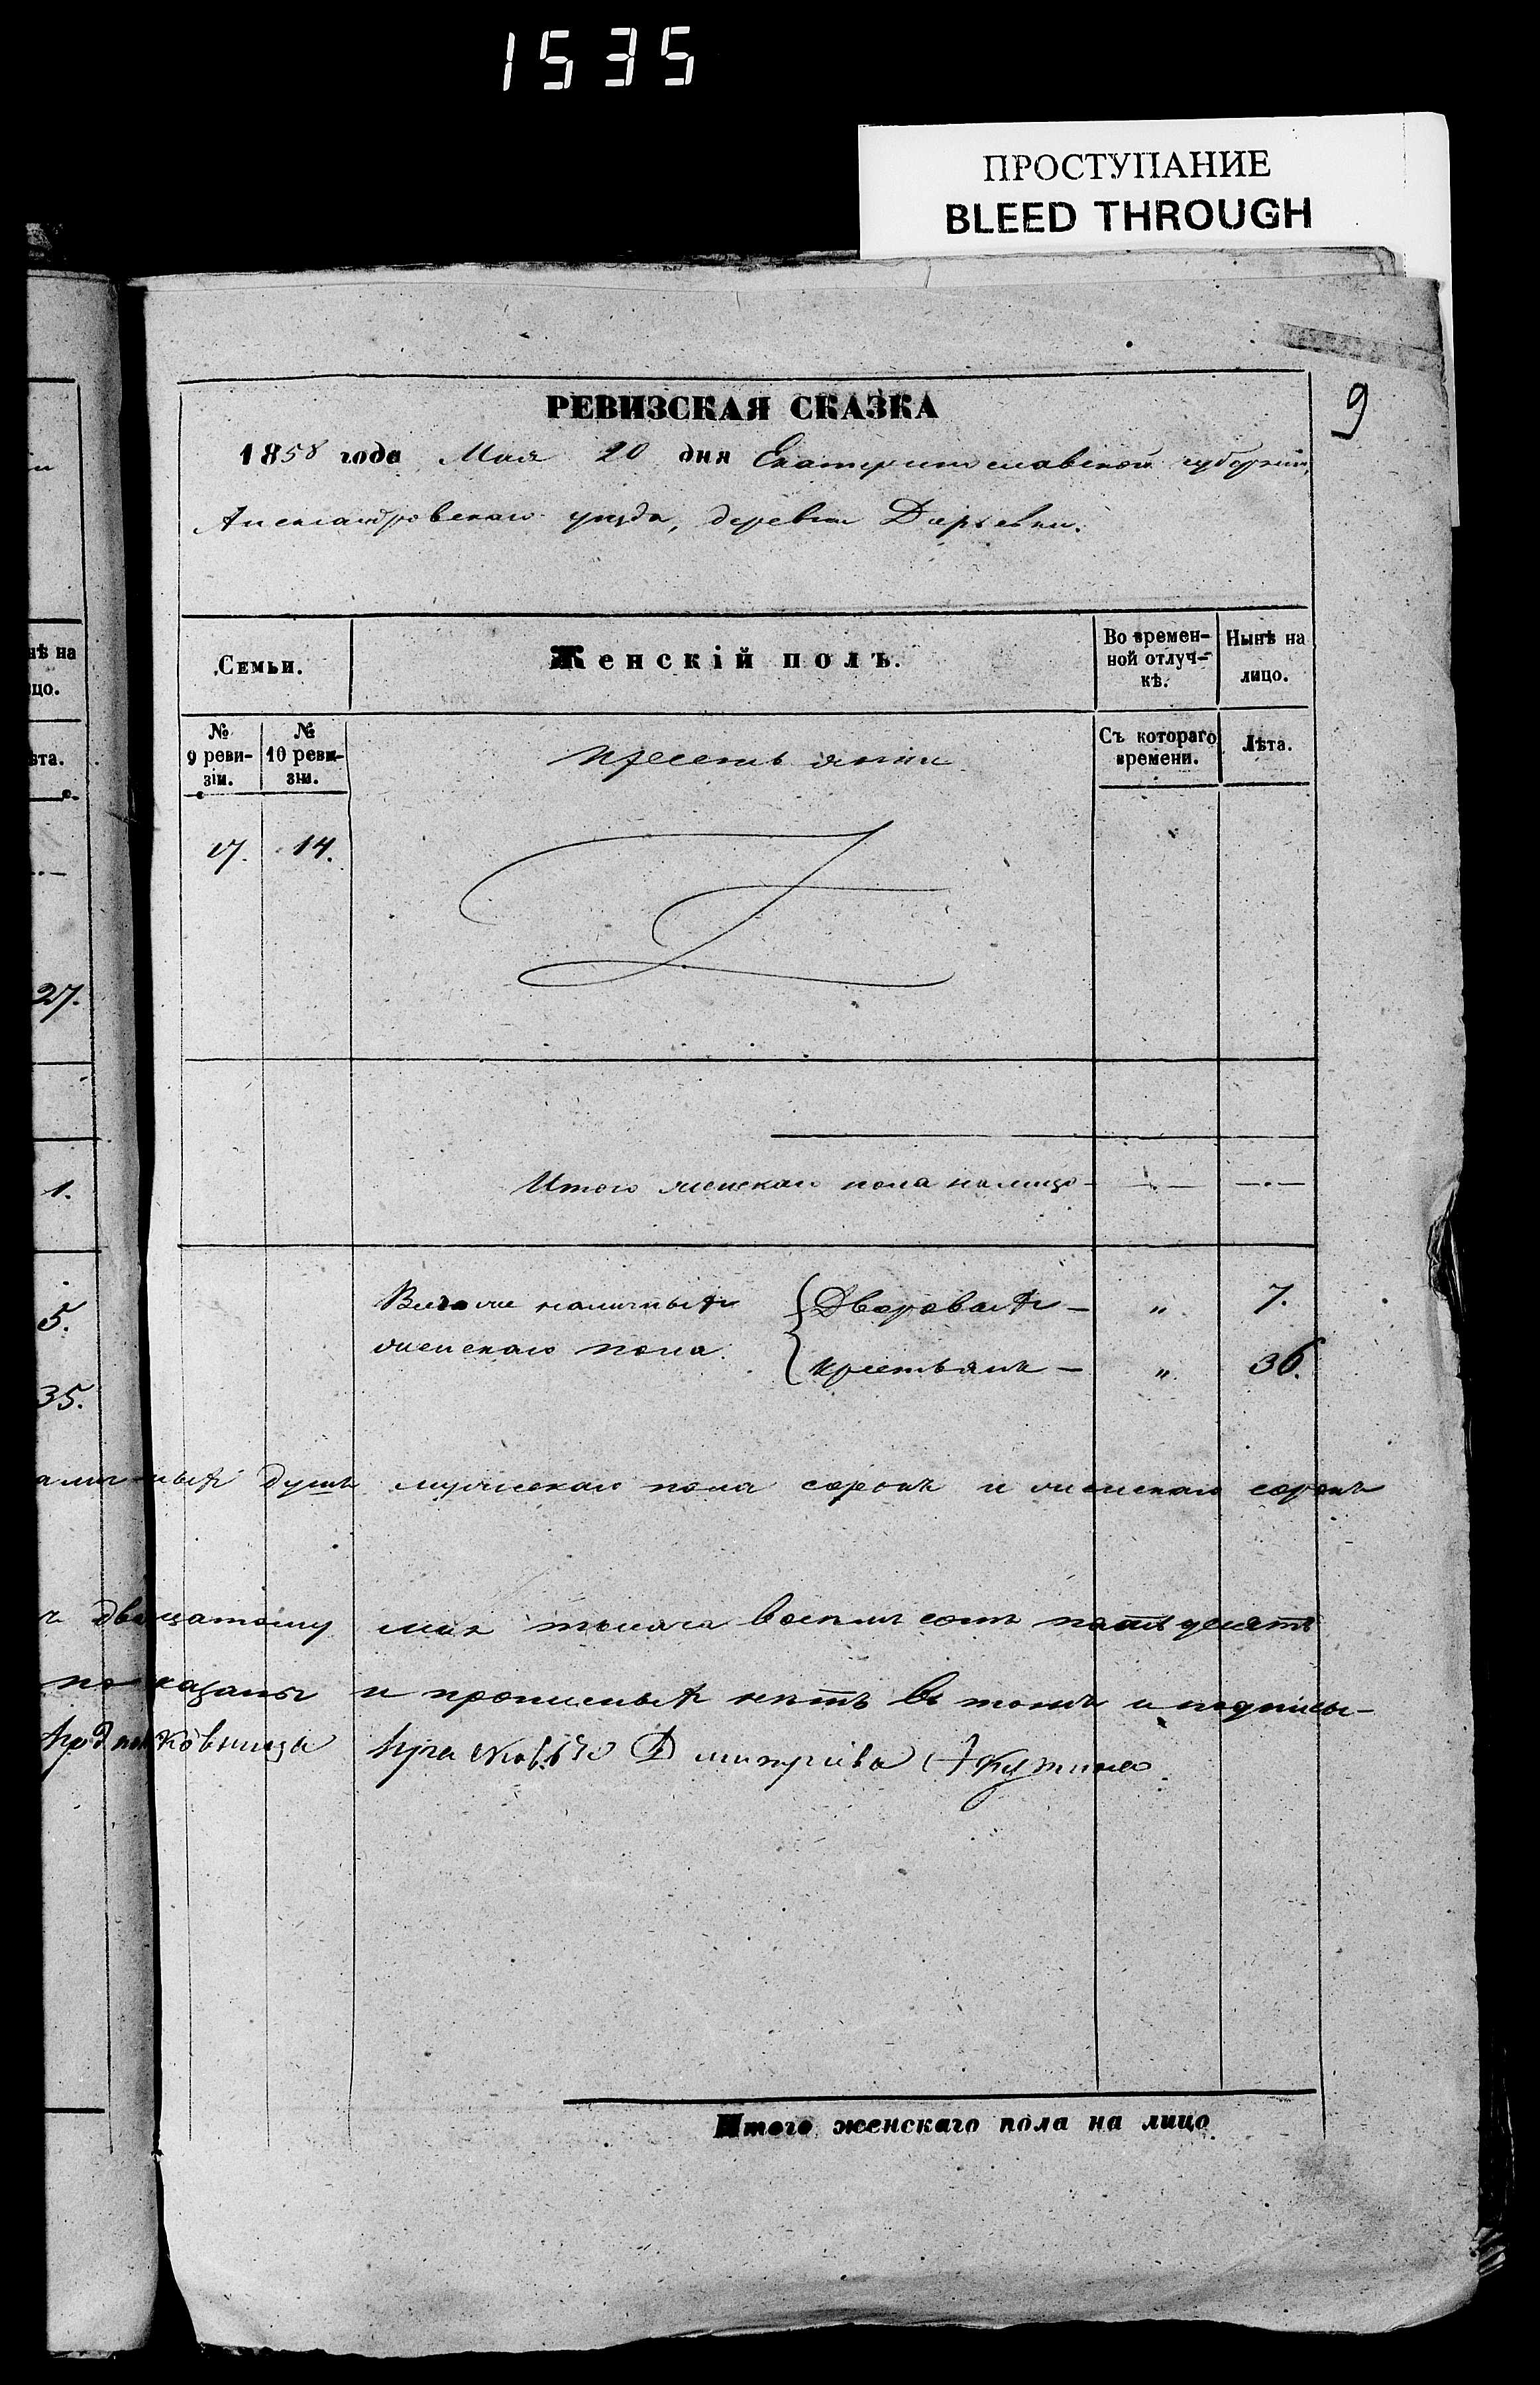 1535
ПРОСТУПАНИЕ
BLEED THROUGH
9
РЕВИЗСКАЯ СКАЗКА
1858 года Мая 20 дня Екатеринославской губерніи,
Александровскаго уѣзда, деревни Дарьевки.
Семьи.
Женскій полъ.
Во времен-
ной отлуч-
кѣ.
Нынѣ на
лицо.
№
9 реви-
зіи.
№
10 реви-
зіи.
Съ котораго
времени.
Лѣта.
Крестьянки
17. 14.
Итого женскаго пола на лицо — — . — — . —
Всего наличныхъ { Дворовыхъ — „ 7.
женскаго пола { крестьянъ — „ 36.
душъ мужескаго пола сорокъ и женскаго сорокъ
двадцатому мая тысяча восемь сотъ пятьдесятъ
показаны и прописныхъ нѣтъ въ томъ и подписы-
Дмитріева
Итого женскаго пола на лицо
нѣ на
цо.
ѣта.
27.
1.
5.
35.